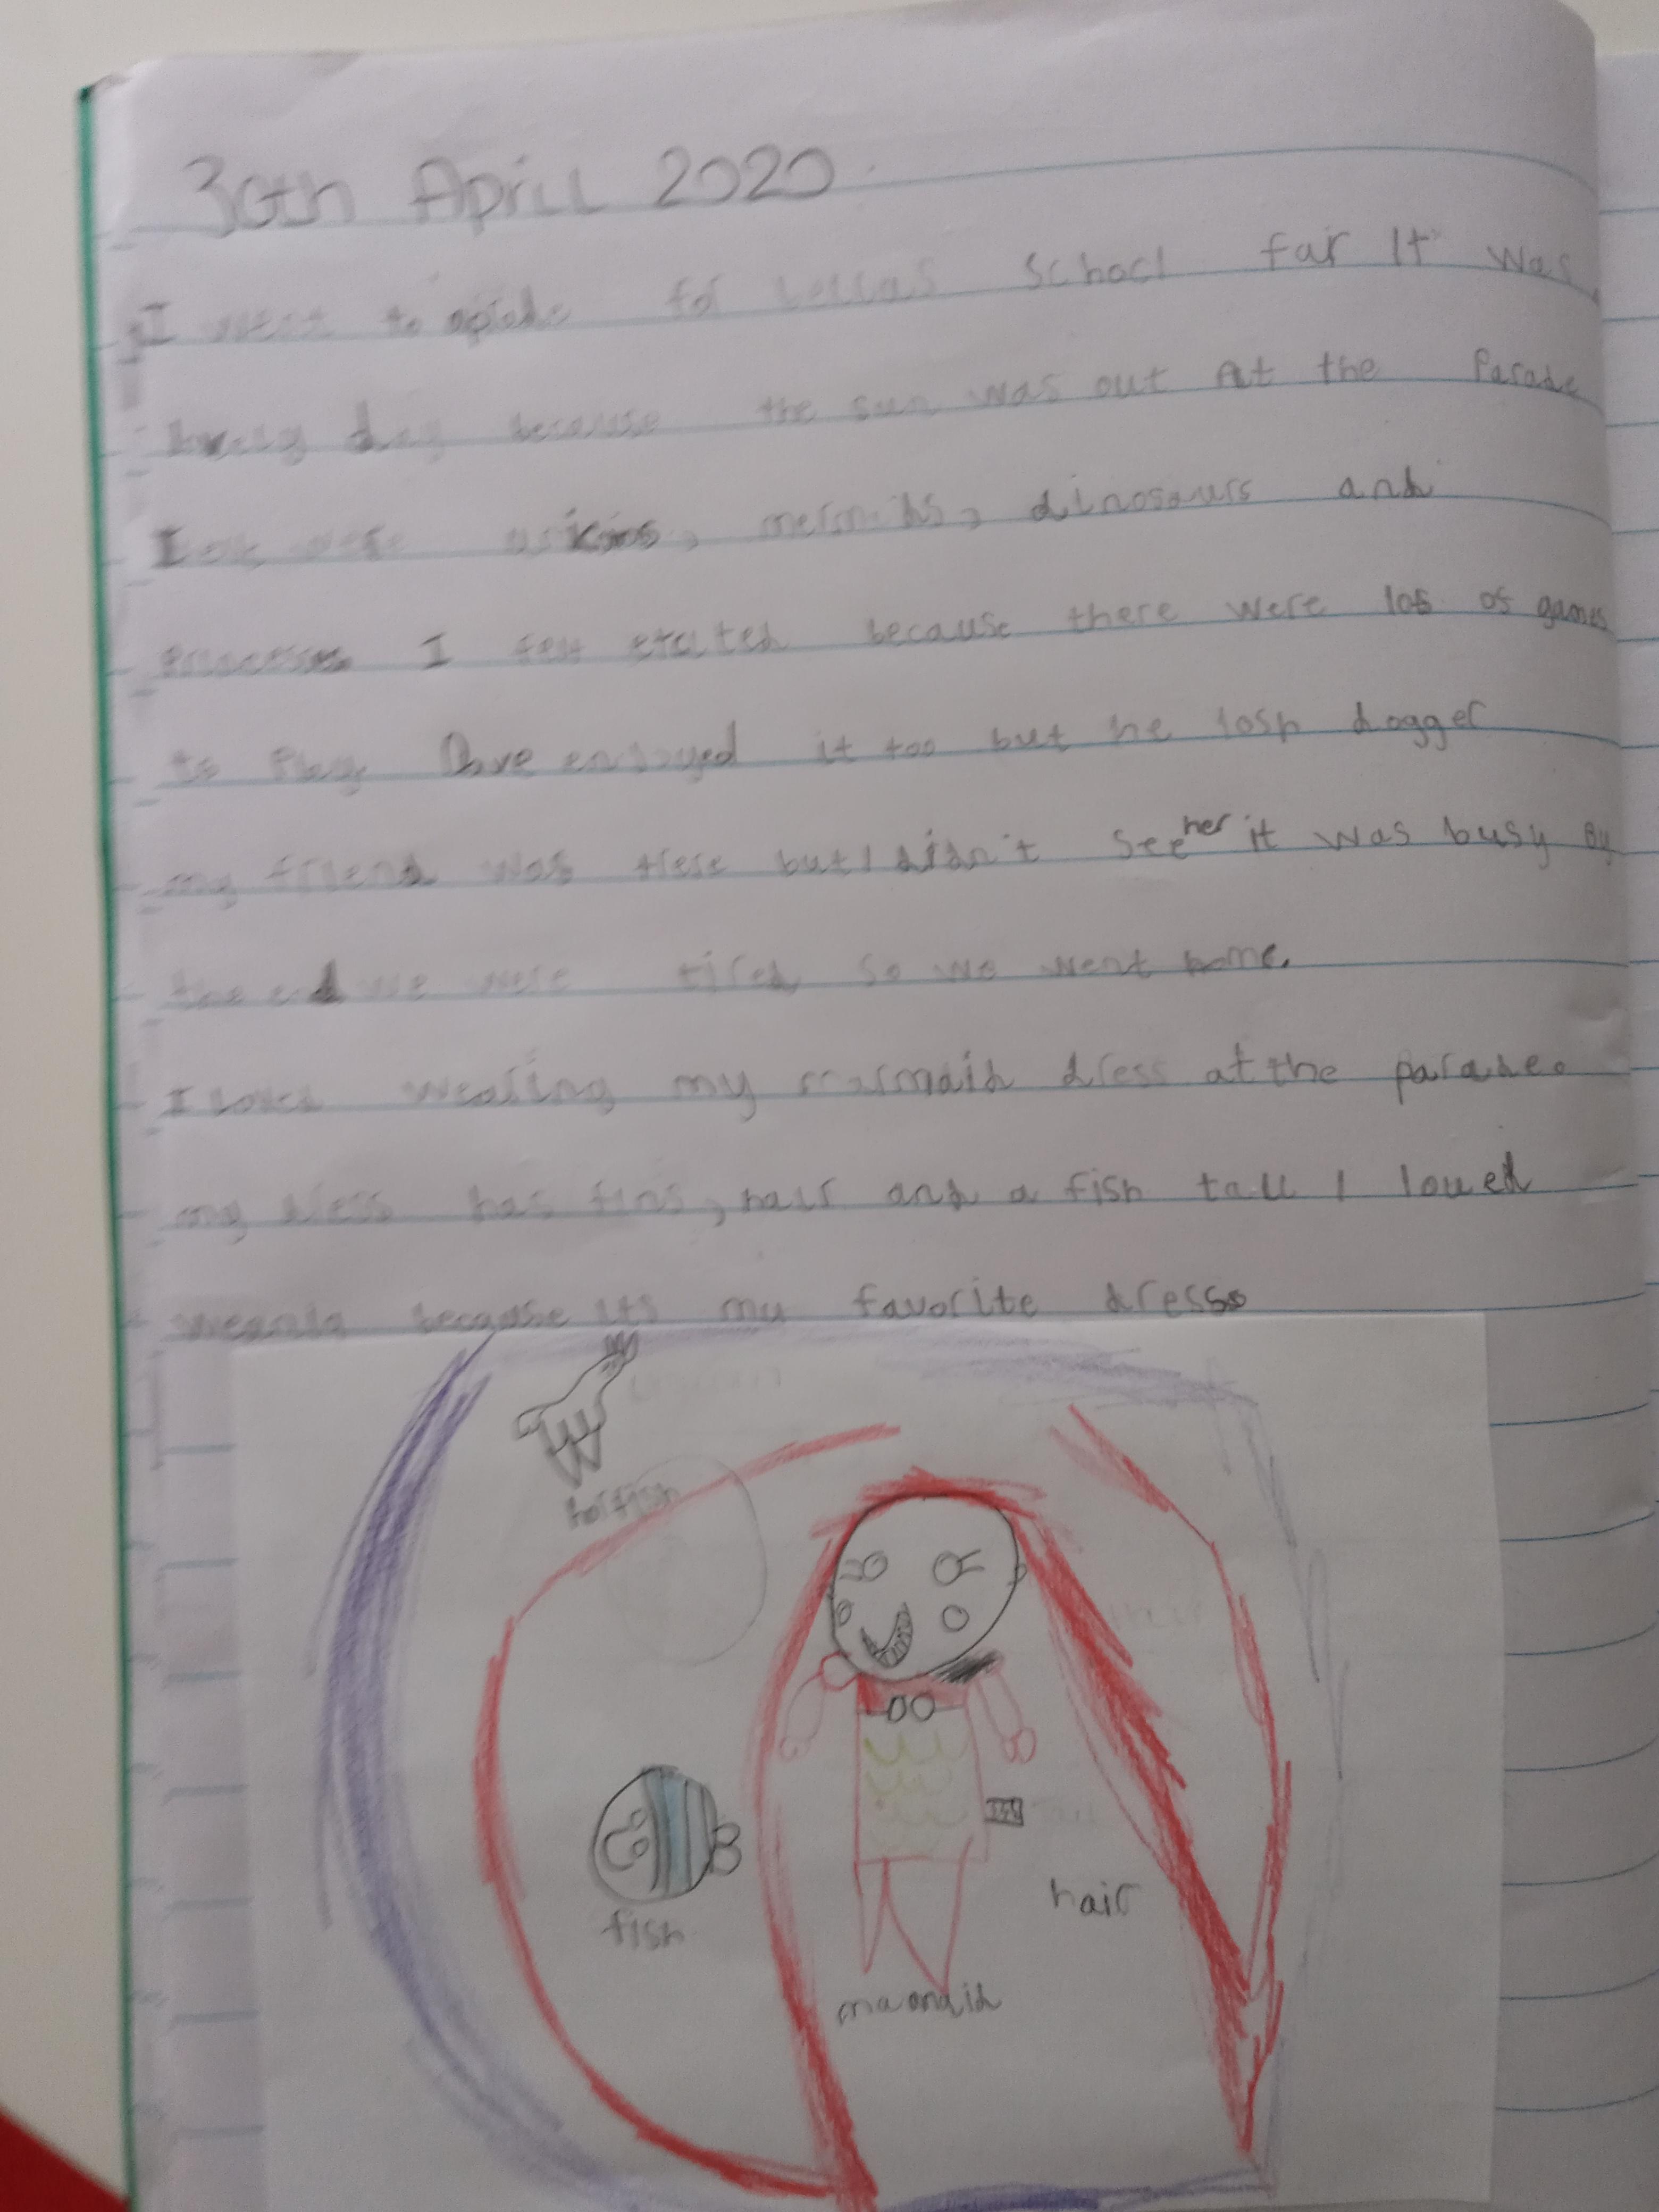 30th Aprill 2020
I went to for school fair It was
lovely day because the sun was out At the Parade
were , dinosaurs and
I felt because there were lots of games
to Play Dave enjoyed it too but he losh dogger
my friend was there but I didn't see her it was busy By
the end we were tired so we went home.
I loved wearing my mermaid dress at the parade.
my dress has fins, hair and a fish tail I loved
because its my favorite dress
fish
hair